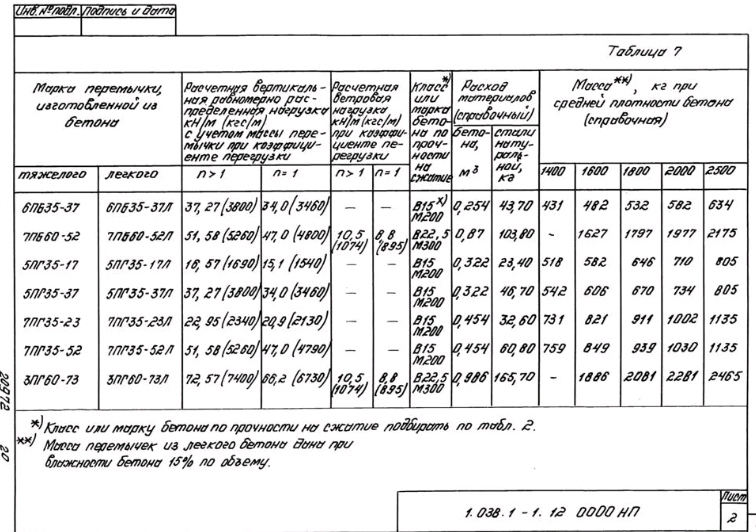 Инв.№подл. Подпись и дата
Таблица 7
Марка перемычки, изготовленной из бетона
Расчетная вертикаль-
ная равномерно рас-
пределенная нагрузка
кН/м (кгс/м)
с учетом массы пере-
мычки при коэффици-
енте перегрузки
Расчетная
ветровая
нагрузка
кН/м (кгс/м)
при коэффи-
циенте пе-
регрузки
Класс*)
или
марка
бето-
на по
проч-
ности
на
сжатие
Расход
материалов
(справочный)
бето-
на,
м³
стали
нату-
раль-
ной,
кг
Масса**), кг при
средней плотности бетона
(справочная)
тяжелого легкого n>1 n=1 n>1 n=1 1400 1600 1800 2000 2500
6ПБ35-37 6ПБ35-37Л 37,27(3800) 34,0(3460) — — В15*) М200 0,254 43,70 431 482 532 582 634
7ПБ60-52 7ПБ60-52Л 51,58(5260) 47,0(4800) 10,5 (1074) 8,8 (895) В22,5 М300 0,87 103,80 - 1627 1797 1977 2175
5ПГ35-17 5ПГ35-17Л 16,57(1690) 15,1(1540) — — В15 М200 0,322 23,40 518 582 646 710 805
5ПГ35-37 5ПГ35-37Л 37,27(3800) 34,0(3460) — — В15 М200 0,322 46,70 542 606 670 734 805
7ПГ35-23 7ПГ35-23Л 22,95(2340) 20,9(2130) — — В15 М200 0,454 32,60 731 821 911 1002 1135
7ПГ35-52 7ПГ35-52Л 51,58(5260) 47,0(4790) — — В15 М200 0,454 60,80 759 849 939 1030 1135
3ПГ60-73 3ПГ60-73Л 72,57(7400) 66,2(6730) 10,5 (1074) 8,8 (895) В22,5 М300 0,986 165,70 - 1886 2081 2281 2465
*) Класс или марку бетона по прочности на сжатие подбирать по табл. 2.
**) Масса перемычек из легкого бетона дана при
влажности бетона 15% по объему.
20972 20
1.038.1-1.12 0000 НП
Лист
2